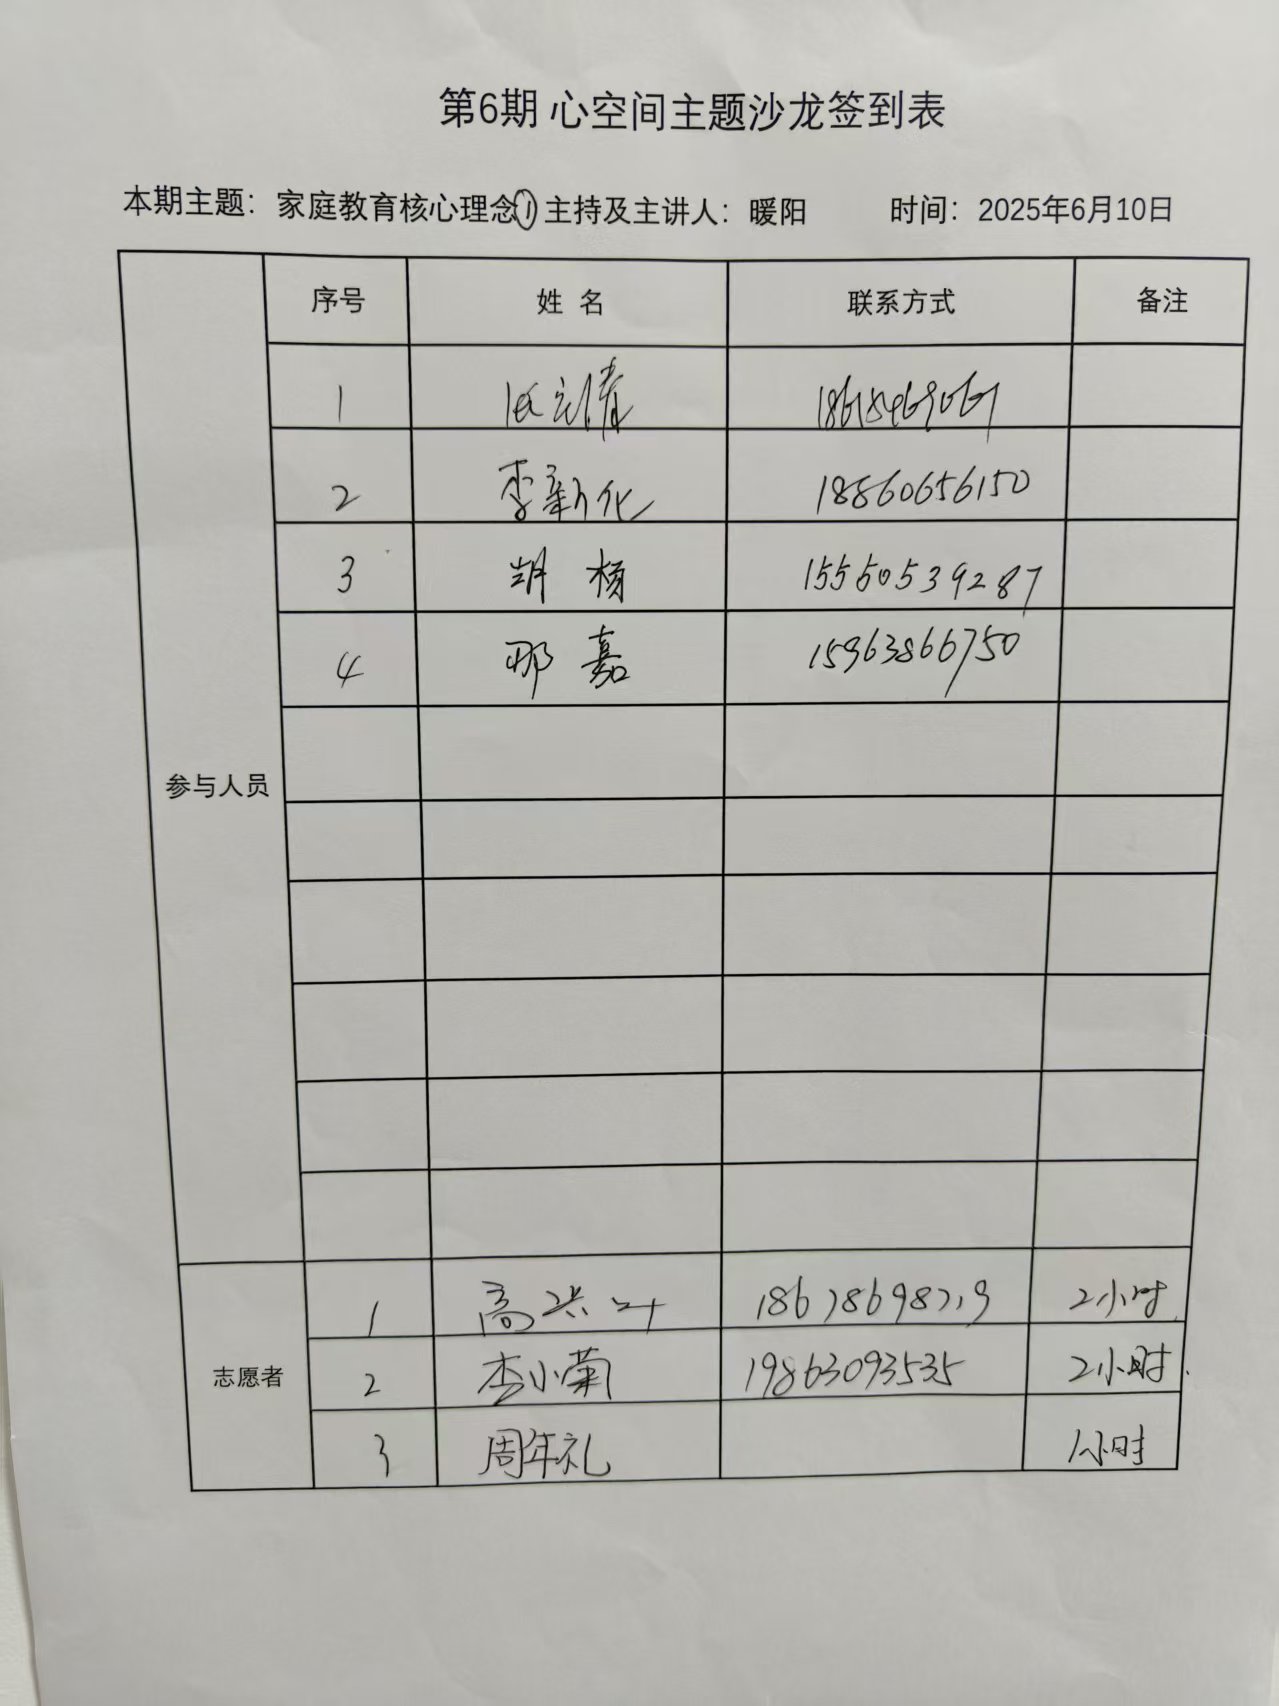 第6期 心空间主题沙龙签到表
本期主题：家庭教育核心理念① 主持及主讲人：暖阳 时间：2025年6月10日
序号 姓名 联系方式 备注
参与人员
1
2 李新化 18860656150
3 胡杨 15550539287
4 邢嘉 15963866750
志愿者
1 高兴叶 2小时
2 李小菊 19863093535 2小时
3 周年礼 1小时